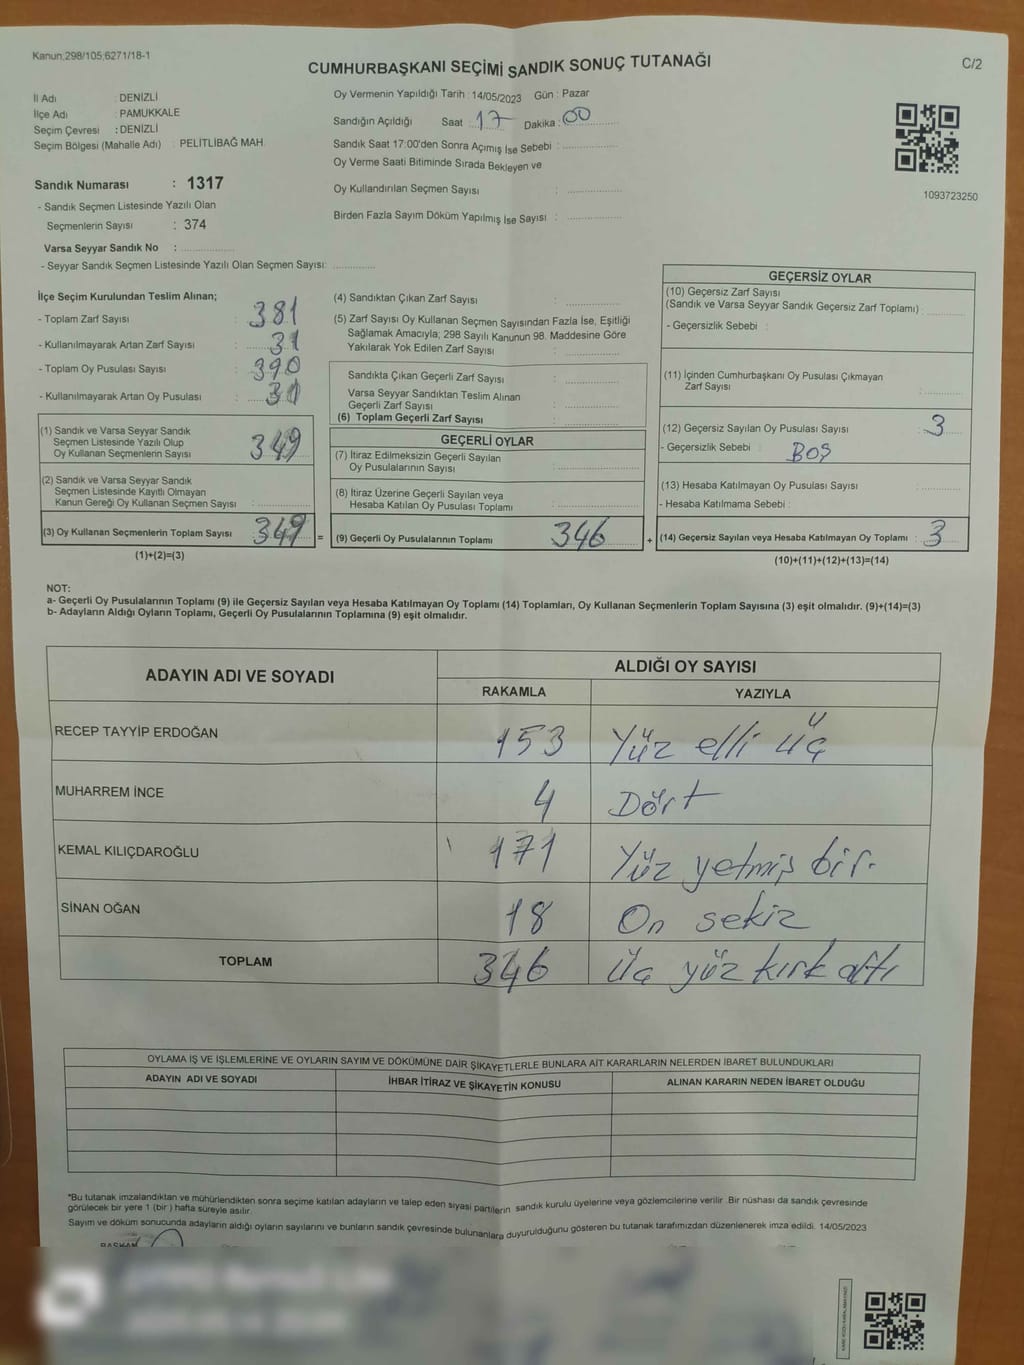 Kanun;298/105;6271/18-1
CUMHURBAŞKANI SEÇİMİ SANDIK SONUÇ TUTANAĞI
C/2
İl Adı : DENİZLİ
İlçe Adı : PAMUKKALE
Seçim Çevresi : DENİZLİ
Seçim Bölgesi (Mahalle Adı) : PELİTLİBAĞ MAH.
Sandık Numarası : 1317
- Sandık Seçmen Listesinde Yazılı Olan
Seçmenlerin Sayısı : 374
Varsa Seyyar Sandık No :
- Seyyar Sandık Seçmen Listesinde Yazılı Olan Seçmen Sayısı:
Oy Vermenin Yapıldığı Tarih : 14/05/2023 Gün : Pazar
Sandığın Açıldığı Saat : 17 Dakika : 00
Sandık Saat 17:00'den Sonra Açımış İse Sebebi :
Oy Verme Saati Bitiminde Sırada Bekleyen ve
Oy Kullandırılan Seçmen Sayısı :
Birden Fazla Sayım Döküm Yapılmış İse Sayısı :
1093723250
İlçe Seçim Kurulundan Teslim Alınan;
- Toplam Zarf Sayısı : 381
- Kullanılmayarak Artan Zarf Sayısı : 31
- Toplam Oy Pusulası Sayısı : 390
- Kullanılmayarak Artan Oy Pusulası :
(1) Sandık ve Varsa Seyyar Sandık
Seçmen Listesinde Yazılı Olup
Oy Kullanan Seçmenlerin Sayısı : 349
(2) Sandık ve Varsa Seyyar Sandık
Seçmen Listesinde Kayıtlı Olmayan
Kanun Gereği Oy Kullanan Seçmen Sayısı :
(3) Oy Kullanan Seçmenlerin Toplam Sayısı 349 =
(1)+(2)=(3)
(4) Sandıktan Çıkan Zarf Sayısı :
(5) Zarf Sayısı Oy Kullanan Seçmen Sayısından Fazla İse, Eşitliği
Sağlamak Amacıyla; 298 Sayılı Kanunun 98. Maddesine Göre
Yakılarak Yok Edilen Zarf Sayısı :
Sandıkta Çıkan Geçerli Zarf Sayısı :
Varsa Seyyar Sandıktan Teslim Alınan
Geçerli Zarf Sayısı :
(6) Toplam Geçerli Zarf Sayısı :
GEÇERLİ OYLAR
(7) İtiraz Edilmeksizin Geçerli Sayılan
Oy Pusulalarının Sayısı :
(8) İtiraz Üzerine Geçerli Sayılan veya
Hesaba Katılan Oy Pusulası Toplamı :
(9) Geçerli Oy Pusulalarının Toplamı 346 +
GEÇERSİZ OYLAR
(10) Geçersiz Zarf Sayısı
(Sandık ve Varsa Seyyar Sandık Geçersiz Zarf Toplamı) :
- Geçersizlik Sebebi :
(11) İçinden Cumhurbaşkanı Oy Pusulası Çıkmayan
Zarf Sayısı :
(12) Geçersiz Sayılan Oy Pusulası Sayısı : 3
- Geçersizlik Sebebi : BOŞ
(13) Hesaba Katılmayan Oy Pusulası Sayısı :
- Hesaba Katılmama Sebebi :
(14) Geçersiz Sayılan veya Hesaba Katılmayan Oy Toplamı : 3
(10)+(11)+(12)+(13)=(14)
NOT:
a- Geçerli Oy Pusulalarının Toplamı (9) ile Geçersiz Sayılan veya Hesaba Katılmayan Oy Toplamı (14) Toplamları, Oy Kullanan Seçmenlerin Toplam Sayısına (3) eşit olmalıdır. (9)+(14)=(3)
b- Adayların Aldığı Oyların Toplamı, Geçerli Oy Pusulalarının Toplamına (9) eşit olmalıdır.
ADAYIN ADI VE SOYADI
ALDIĞI OY SAYISI
RAKAMLA YAZIYLA
RECEP TAYYİP ERDOĞAN 153 Yüz elli üç
MUHARREM İNCE 4 Dört
KEMAL KILIÇDAROĞLU 171 Yüz yetmiş bir.
SİNAN OĞAN 18 On sekiz
TOPLAM 346 üç yüz kırk altı
OYLAMA İŞ VE İŞLEMLERİNE VE OYLARIN SAYIM VE DÖKÜMÜNE DAİR ŞİKAYETLERLE BUNLARA AİT KARARLARIN NELERDEN İBARET BULUNDUKLARI
ADAYIN ADI VE SOYADI İHBAR İTİRAZ VE ŞİKAYETİN KONUSU ALINAN KARARIN NEDEN İBARET OLDUĞU
*Bu tutanak imzalandıktan ve mühürlendikten sonra seçime katılan adayların ve talep eden siyasi partilerin sandık kurulu üyelerine veya gözlemcilerine verilir. Bir nüshası da sandık çevresinde
görülecek bir yere 1 (bir) hafta süreyle asılır.
Sayım ve döküm sonucunda adayların aldığı oyların sayılarını ve bunların sandık çevresinde bulunanlara duyurulduğunu gösteren bu tutanak tarafımızdan düzenlenerek imza edildi. 14/05/2023
BAŞKAN